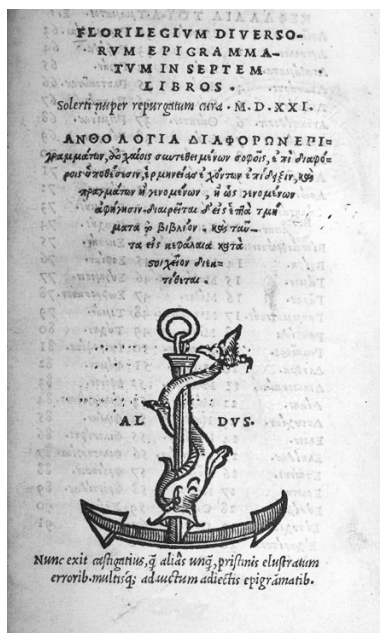 FLORILEGIVM DIVERSO-
RVM EPIGRAMMA-
TVM IN SEPTEM
LIBROS.
Solerti nuper repurgatum cura . M.D.XXI.
ΑΝΘΟΛΟΓΙΑ ΔΙΑΦΟΡΩΝ ΕΠΙ=
γραμμάτων, συντεθειμένων σοφοῖς, ἐπὶ διαφό=
ροις ὑποθέσεσιν, ἑρμηνείας ἐχόντων ἐπίδειξιν, καὶ
πραγμάτων ἢ γενομένων, ἢ ὡς γενομένων
ἀφήγησιν. διαιρεῖται δ' εἰς ἑπτὰ τμή
ματα τοῦ βιβλίου. καὶ ταῦ=
τα εἰς κεφάλαια κατὰ
στοιχεῖον διεκ=
τίθεται.
AL DVS.
Nunc exit castigatius, q̃ aliàs unq̃, pristinis elustratum
errorib. multisq; adiectis epigrãmatib.